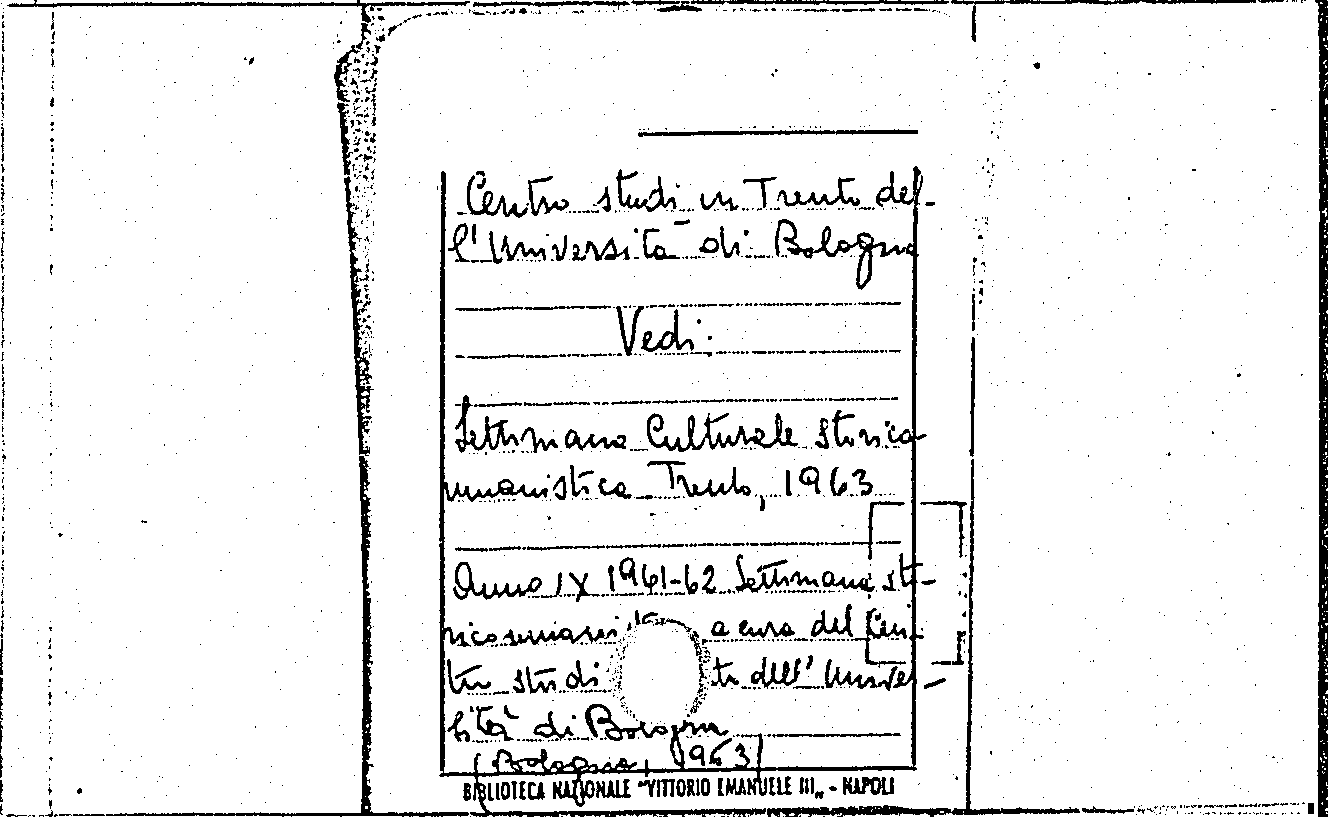 Centro studi in Trento del-
l'Università di Bologna
Vedi:
Settimana Culturale storica
umanistica Trento, 1963
Anno IX 1961-62 Settimana sto-
a cura del Cen-
tro studi dell'Univer-
sità di Bologna
(Bologna, 1963)
BIBLIOTECA NAZIONALE "VITTORIO EMANUELE III" - NAPOLI